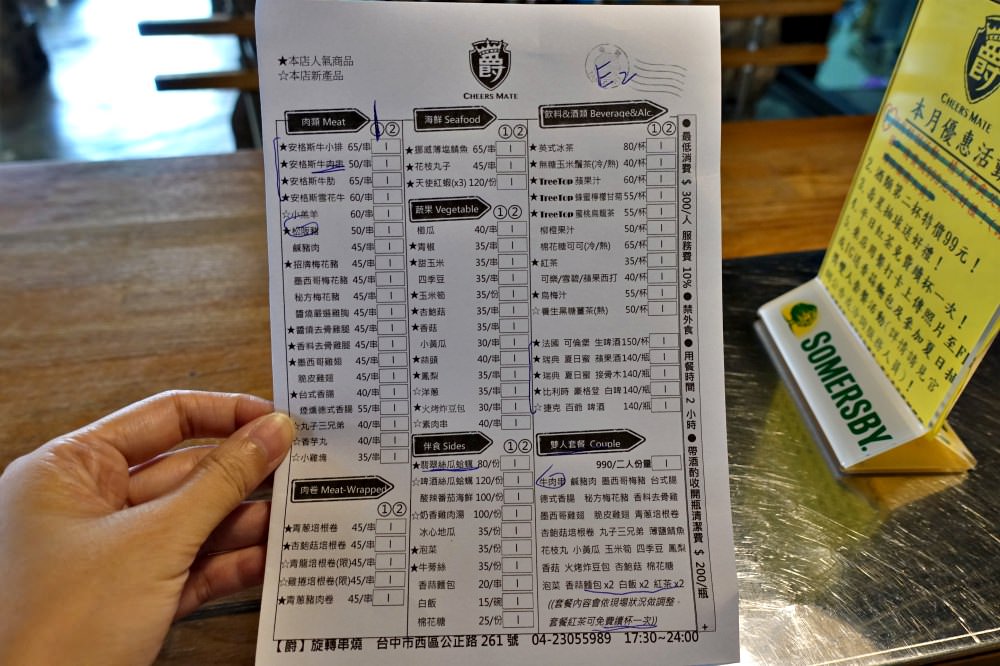 ★本店人氣商品
☆本店新產品
爵
CHEERS MATE
E2
肉類 Meat ①②
★安格斯牛小排 65/串
★安格斯牛肉串 50/串
★安格斯牛肋 65/串
★安格斯雪花牛 60/串
☆小羔羊 60/串
★松阪豬 50/串
鹹豬肉 45/串
★招牌梅花豬 45/串
墨西哥梅花豬 45/串
秘方梅花豬 45/串
醬燒嚴選雞胸 45/串
★醬燒去骨雞腿 45/串
★香料去骨雞腿 45/串
★墨西哥雞翅 45/串
脆皮雞翅 45/串
★台式香腸 40/串
煙燻德式香腸 55/串
☆丸子三兄弟 40/串
☆香芋丸 40/串
☆小雞塊 35/串
肉卷 Meat-Wrapped
①②
★青蔥培根卷 45/串
★杏鮑菇培根卷 45/串
☆青龍培根卷(限)45/串
☆雞捲培根卷(限)45/串
★青蔥豬肉卷 45/串
海鮮 Seafood ①②
★挪威薄塩鯖魚 65/串
★花枝丸子 45/串
★天使紅蝦(x3) 120/份
蔬果 Vegetable ①②
櫛瓜 40/串
★青椒 35/串
★甜玉米 35/串
四季豆 35/串
★玉米筍 35/份
★杏鮑菇 35/串
★香菇 35/串
小黃瓜 30/串
★蒜頭 40/串
★鳳梨 35/串
☆洋蔥 35/串
★火烤炸豆包 30/串
☆素肉串 40/串
伴食 Sides ①②
★翡翠絲瓜蛤蠣 80/份
☆啤酒絲瓜蛤蠣 120/份
酸辣番茄海鮮 100/份
☆奶香雞肉湯 100/份
冰心地瓜 35/份
★泡菜 35/份
★牛蒡絲 35/份
香蒜麵包 20/串
白飯 15/碗
棉花糖 25/份
飲料&酒類 Beverage&Alc.
①②
★英式冰茶 80/杯
★無糖玉米鬚茶(冷/熱) 40/杯
★TreeTop 蘋果汁 60/杯
★TreeTop 蜂蜜檸檬甘菊 55/杯
★TreeTop 蜜桃烏龍茶 55/杯
柳橙果汁 50/杯
棉花糖可可(冷/熱) 65/杯
★紅茶 35/杯
可樂/雪碧/蘋果西打 40/杯
★烏梅汁 55/杯
☆養生黑糖薑茶(熱) 50/杯
★法國 可倫堡 生啤酒 150/杯
★瑞典 夏日蜜 蘋果酒 140/瓶
★瑞典 夏日蜜 接骨木 140/瓶
★比利時 豪格登 白啤 140/瓶
☆捷克 百爺 啤酒 140/瓶
雙人套餐 Couple
990/二人份量
牛肉串 鹹豬肉 墨西哥梅豬 台式腸
德式香腸 秘方梅花豬 香料去骨雞
墨西哥雞翅 脆皮雞翅 青蔥培根卷
杏鮑菇培根卷 丸子三兄弟 薄鹽鯖魚
花枝丸 小黃瓜 玉米筍 四季豆 鳳梨
香菇 火烤炸豆包 杏鮑菇 棉花糖
泡菜 香蒜麵包 x2 白飯 x2 紅茶 x2
((套餐內容會依現場狀況做調整，
套餐紅茶可免費續杯一次))
●最低消費 $ 300/人 服務費 10% ●禁外食 ●用餐時間 2 小時 ●帶酒酌收開瓶清潔費 $ 200/瓶
【爵】旋轉串燒 台中市西區公正路 261 號 04-23055989 17:30~24:00
爵
CHEERS MATE
本月優惠活動
特價99元！
SOMERSBY.